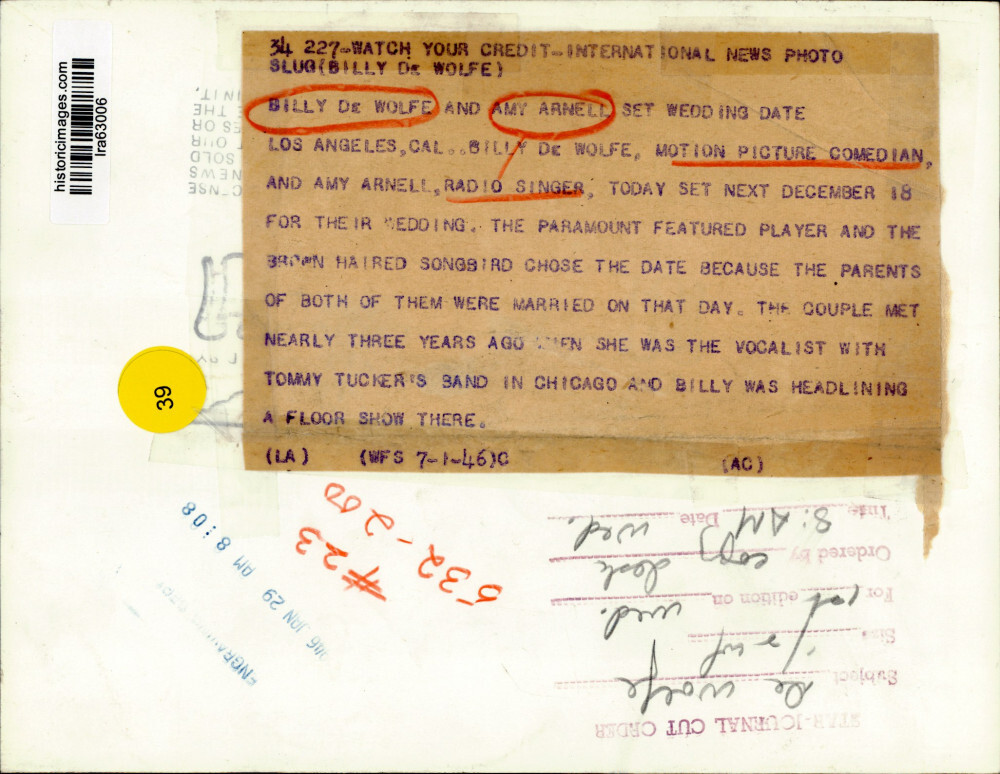 historicimages.com
lra63006
34 227-WATCH YOUR CREDIT-INTERNATIONAL NEWS PHOTO
SLUG(BILLY DE WOLFE)
BILLY DE WOLFE AND AMY ARNELL SET WEDDING DATE
LOS ANGELES,CAL...BILLY DE WOLFE, MOTION PICTURE COMEDIAN,
AND AMY ARNELL,RADIO SINGER, TODAY SET NEXT DECEMBER 18
FOR THEIR WEDDING. THE PARAMOUNT FEATURED PLAYER AND THE
BROWN HAIRED SONGBIRD CHOSE THE DATE BECAUSE THE PARENTS
OF BOTH OF THEM WERE MARRIED ON THAT DAY. THE COUPLE MET
NEARLY THREE YEARS AGO WHEN SHE WAS THE VOCALIST WITH
TOMMY TUCKER'S BAND IN CHICAGO AND BILLY WAS HEADLINING
A FLOOR SHOW THERE.
(LA) (WFS 7-1-46)C (AC)
39
NEWS
SOLD
OUR
THE
IN IT.
532-200
#23
JAN 29 AM 8:08
STAR-JOURNAL CUT ORDER
Subject De Wolfe
Size
For 1st edition on Wed.
Ordered by copy desk
Time 8: AM Date Wed.